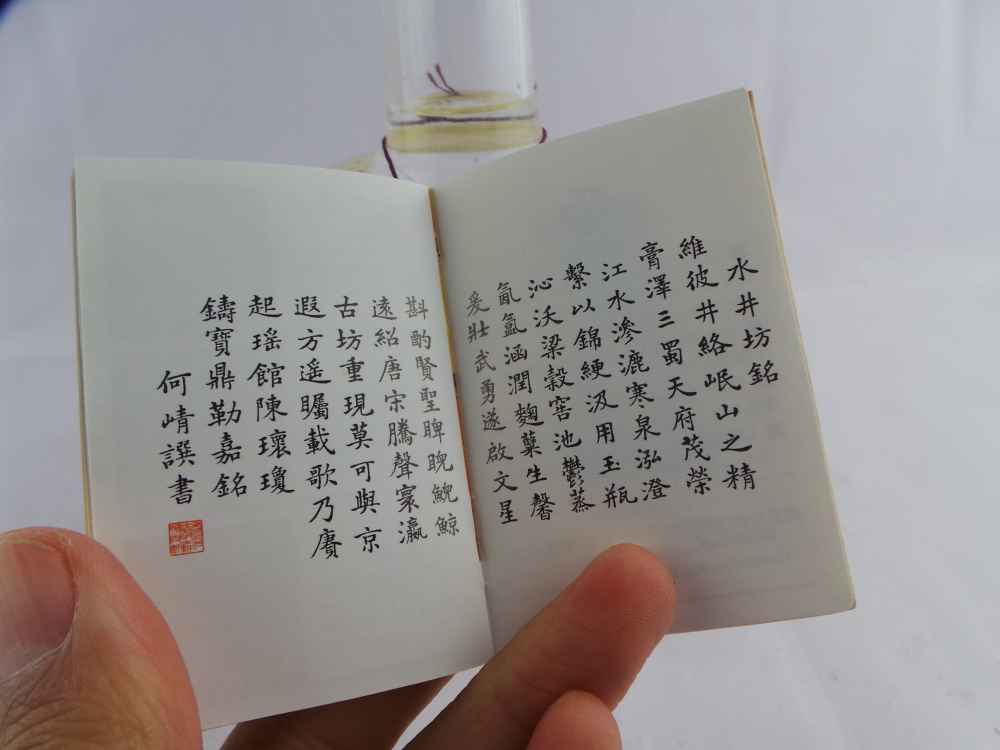 水井坊銘
維彼井絡岷山之精
膏澤三蜀天府茂榮
江水滲漉寒泉泓澄
繫以錦綆汲用玉瓶
沁沃梁穀窖池鬱蒸
氤氳涵潤麴蘖生馨
爰壯武勇遂啟文星
斟酌賢聖睥睨鯢鯨
遠紹唐宋騰聲寰瀛
古坊重現莫可與京
遐方遥矚載歌乃賡
起瑶館陳瓌瓊
鑄寶鼎勒嘉銘
何崝譔書